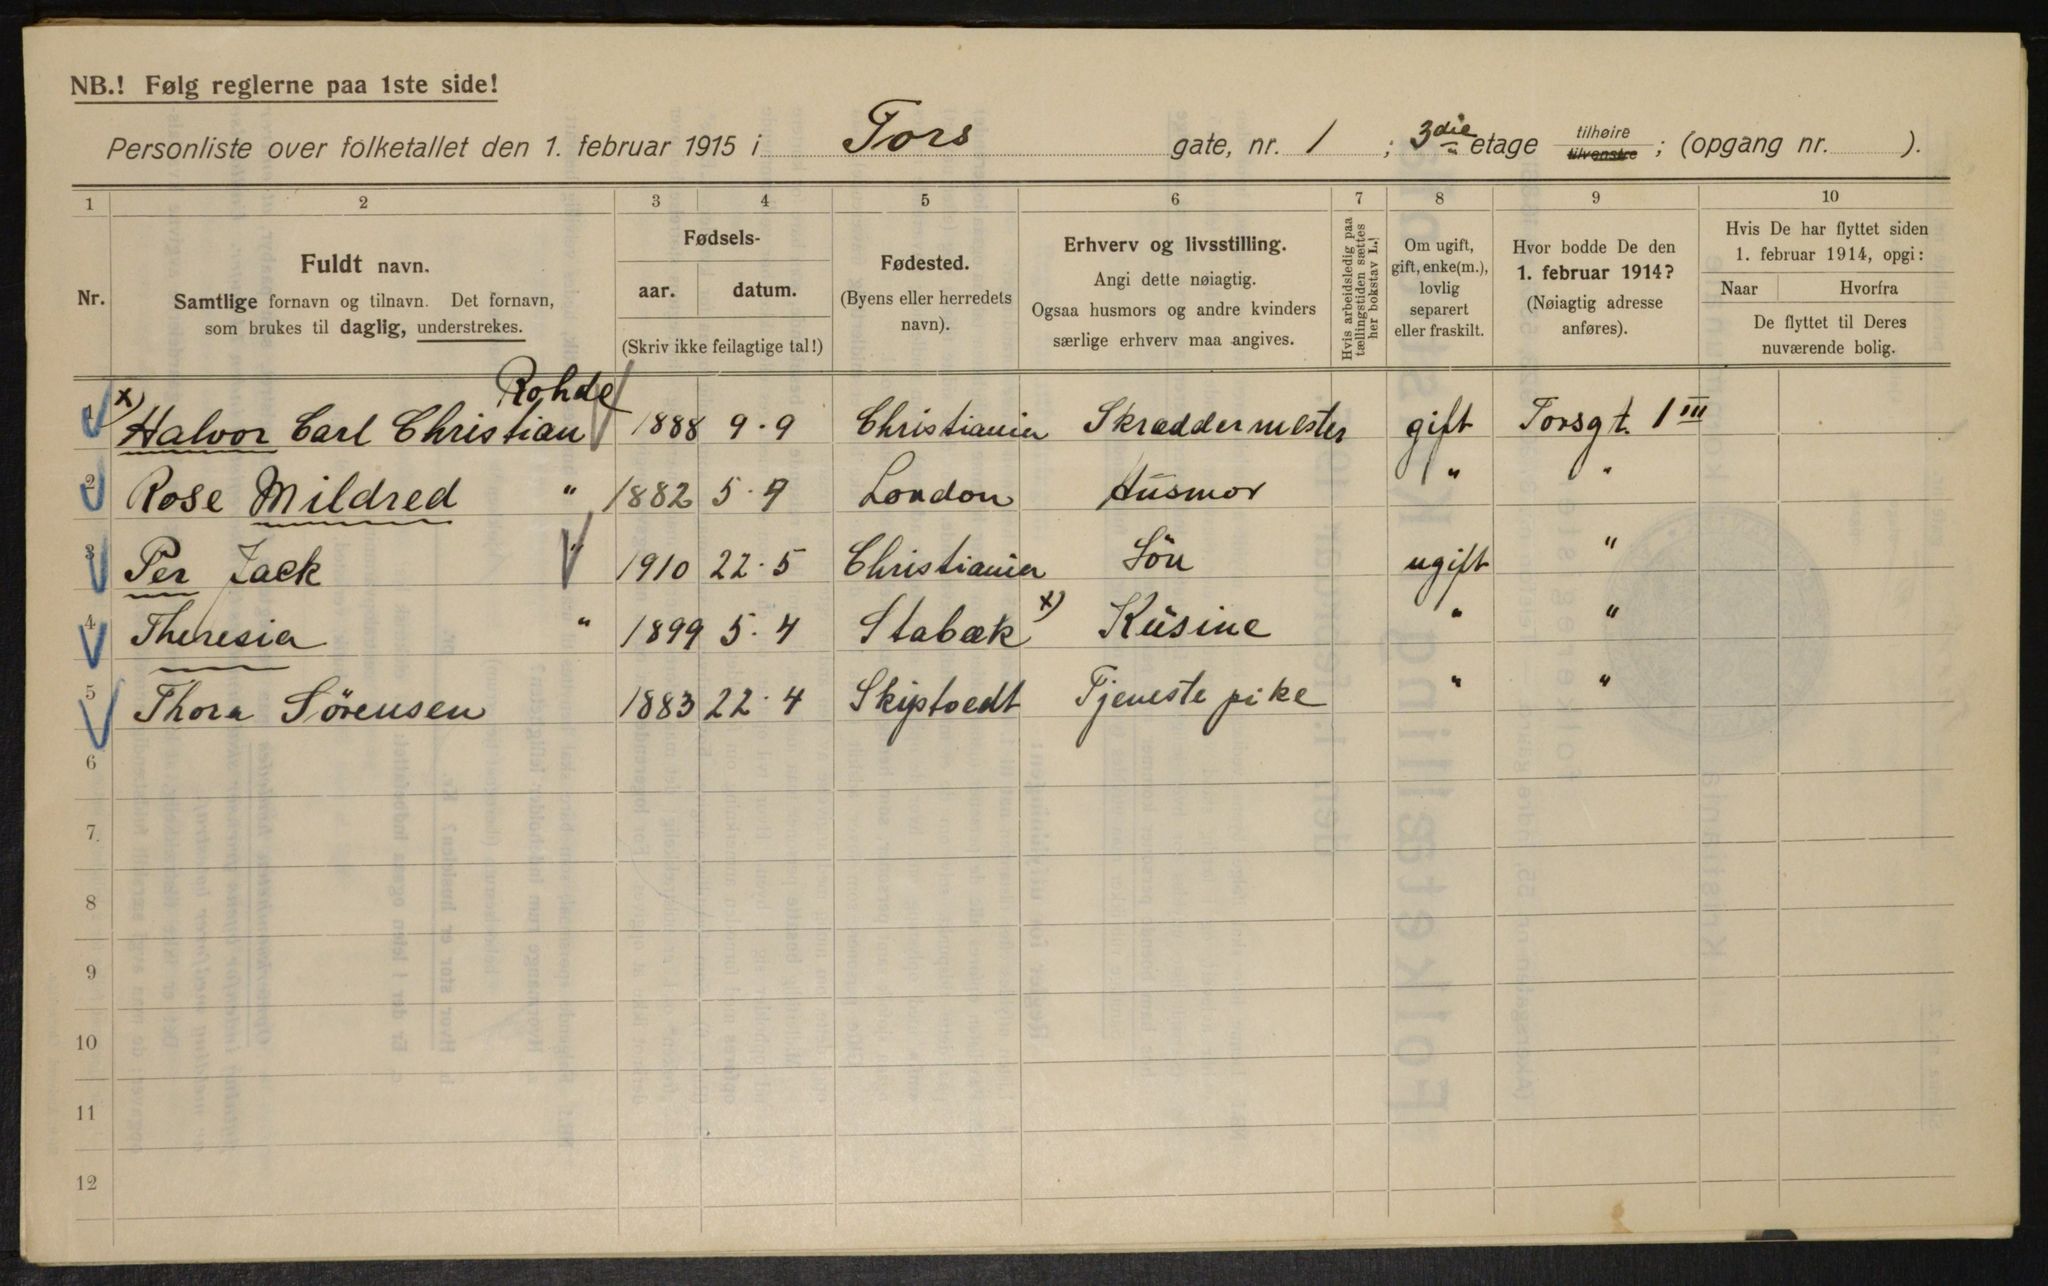 NB.! Følg reglerne paa 1ste side!
Personliste over folketallet den 1. februar 1915 i Tors gate, nr. 1 ; 3die etage tilhøire tilvenstre ; (opgang nr. ).
1 2 3 4 5 6 7 8 9 10
Nr.
Fuldt navn.
Samtlige fornavn og tilnavn. Det fornavn,
som brukes til daglig, understrekes.
Fødsels-
aar. datum.
(Skriv ikke feilagtige tal!)
Fødested.
(Byens eller herredets
navn).
Erhverv og livsstilling.
Angi dette nøiagtig.
Ogsaa husmors og andre kvinders
særlige erhverv maa angives.
Hvis arbeidsledig paa
tællingstiden sættes
her bokstav L.!
Om ugift,
gift, enke(m.),
lovlig
separert
eller fraskilt.
Hvor bodde De den
1. februar 1914?
(Nøiagtig adresse
anføres).
Hvis De har flyttet siden
1. februar 1914, opgi:
Naar Hvorfra
De flyttet til Deres
nuværende bolig.
1 x) Halvor Carl Christian Rohde 1888 9·9 Christiania Skræddermester gift Torsgt. 1 III
2 Rose Mildred " 1882 5·9 London Husmor " "
3 Per Jack " 1910 22·5 Christiania Søn ugift "
4 Theresia " 1899 5·4 Stabæk x) Kusine " "
5 Thora Sörensen 1883 22·4 Skiptvedt Tjenestepike " "
6
7
8
9
10
11
12